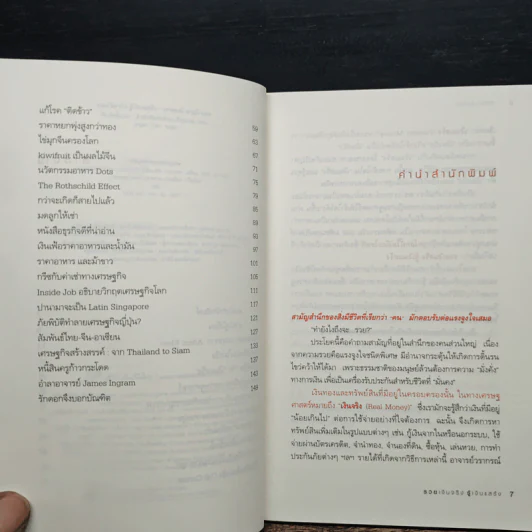 แก้โรค "ติดข้าว"
ราคาหยกพุ่งสูงกว่าทอง 59
ไข่มุกจีนครองโลก 63
kiwifruit เป็นผลไม้จีน 67
นวัตกรรมอาหาร Dots 71
The Rothschild Effect 75
กว่าจะเกิดก็สายไปแล้ว 79
มดลูกให้เช่า 85
หนังสือธุรกิจดีที่น่าอ่าน 89
เงินเฟ้อราคาอาหารและน้ำมัน 93
ราคาอาหาร และม้าขาว 97
กวีซกับค่าเช่าทางเศรษฐกิจ 101
Inside Job อธิบายวิกฤตเศรษฐกิจโลก 106
ปานามาจะเป็น Latin Singapore 111
ภัยพิบัติทำลายเศรษฐกิจญี่ปุ่น? 117
สัมพันธ์ไทย-จีน-อาเซียน 121
เศรษฐกิจสร้างสรรค์ : จาก Thailand to Siam 127
หนี้สินครูก้าวกระโดด 133
อำลาอาจารย์ James Ingram 140
รักดอกจึงบอกบัณฑิต 146
คำนำสำนักพิมพ์
สามัญสำนึกของสิ่งมีชีวิตที่เรียกว่า "คน" มักตอบรับต่อแรงจูงใจเสมอ
"ทำยังไงถึงจะ...รวย?"
ประโยคนี้คือคำถามสามัญที่อยู่ในสำนึกของคนส่วนใหญ่ เนื่อง
จากความรวยคือแรงจูงใจชนิดพิเศษ มีอำนาจกระตุ้นให้เกิดการดิ้นรน
ไขว่คว้าให้ได้มา เพราะธรรมชาติของมนุษย์ล้วนต้องการความ "มั่งคั่ง"
ทางการเงิน เพื่อเป็นเครื่องรับประกันสำหรับชีวิตที่ "มั่นคง"
เงินทองและทรัพย์สินที่มีอยู่ในครอบครองนั้น ในทางเศรษฐ
ศาสตร์หมายถึง "เงินจริง (Real Money)" ซึ่งเรามักจะรู้สึกว่าเงินที่มีอยู่
"น้อยเกินไป" ต่อการใช้จ่ายอย่างที่ใจต้องการ ฉะนั้น จึงเกิดการหา
ทรัพย์สินเพิ่มเติมในรูปแบบต่างๆ เช่น กู้เงินจากในหรือนอกระบบ, ใช้
จ่ายผ่านบัตรเครดิต, จำนำทอง, จำนองที่ดิน, ซื้อหุ้น, เล่นหวย, การทำ
ประกันภัยต่างๆ ฯลฯ รายได้ที่เกิดจากวิธีการเหล่านี้ อาจารย์วรากรณ์
รวยเงินจริง รู้เงินเสรีร 7